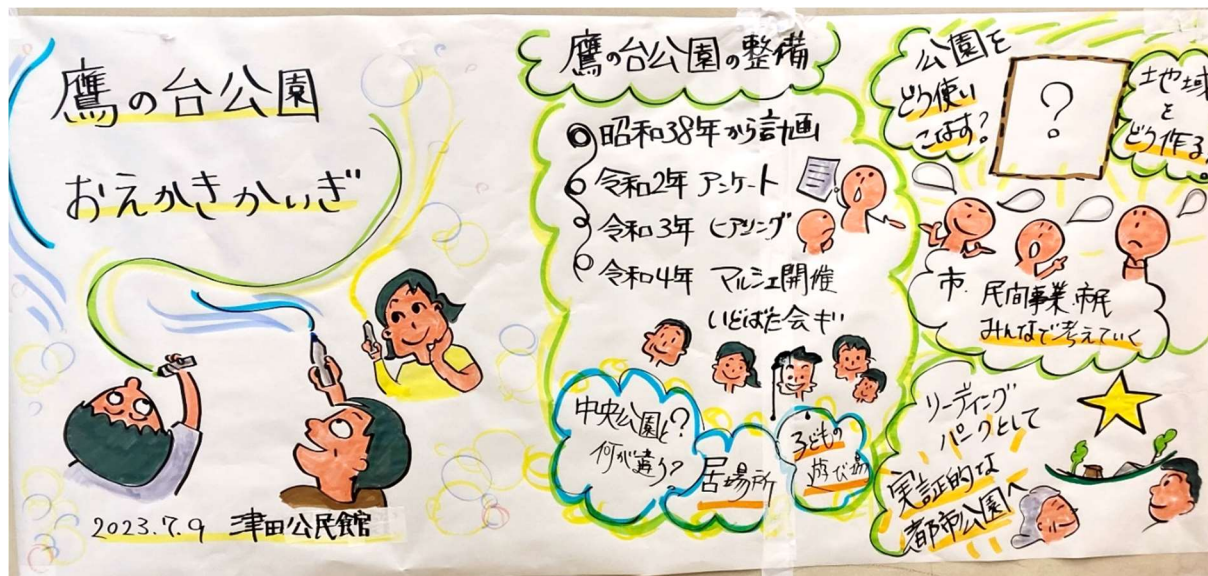 鷹の台公園
おえかきかいぎ
2023.7.9 津田公民館
鷹の台公園の整備
昭和38年から計画
令和2年 アンケート
令和3年 ヒアリング
令和4年 マルシェ開催
いどばた会ギ
中央公園と?
何が違う?
居場所
子どもの
遊び場
公園を
どう使い
こなす?
?
地域
を
どう作る?
市、民間事業、市民
みんなで考えていく
リーディング
パークとして
実証的な
都市公園へ